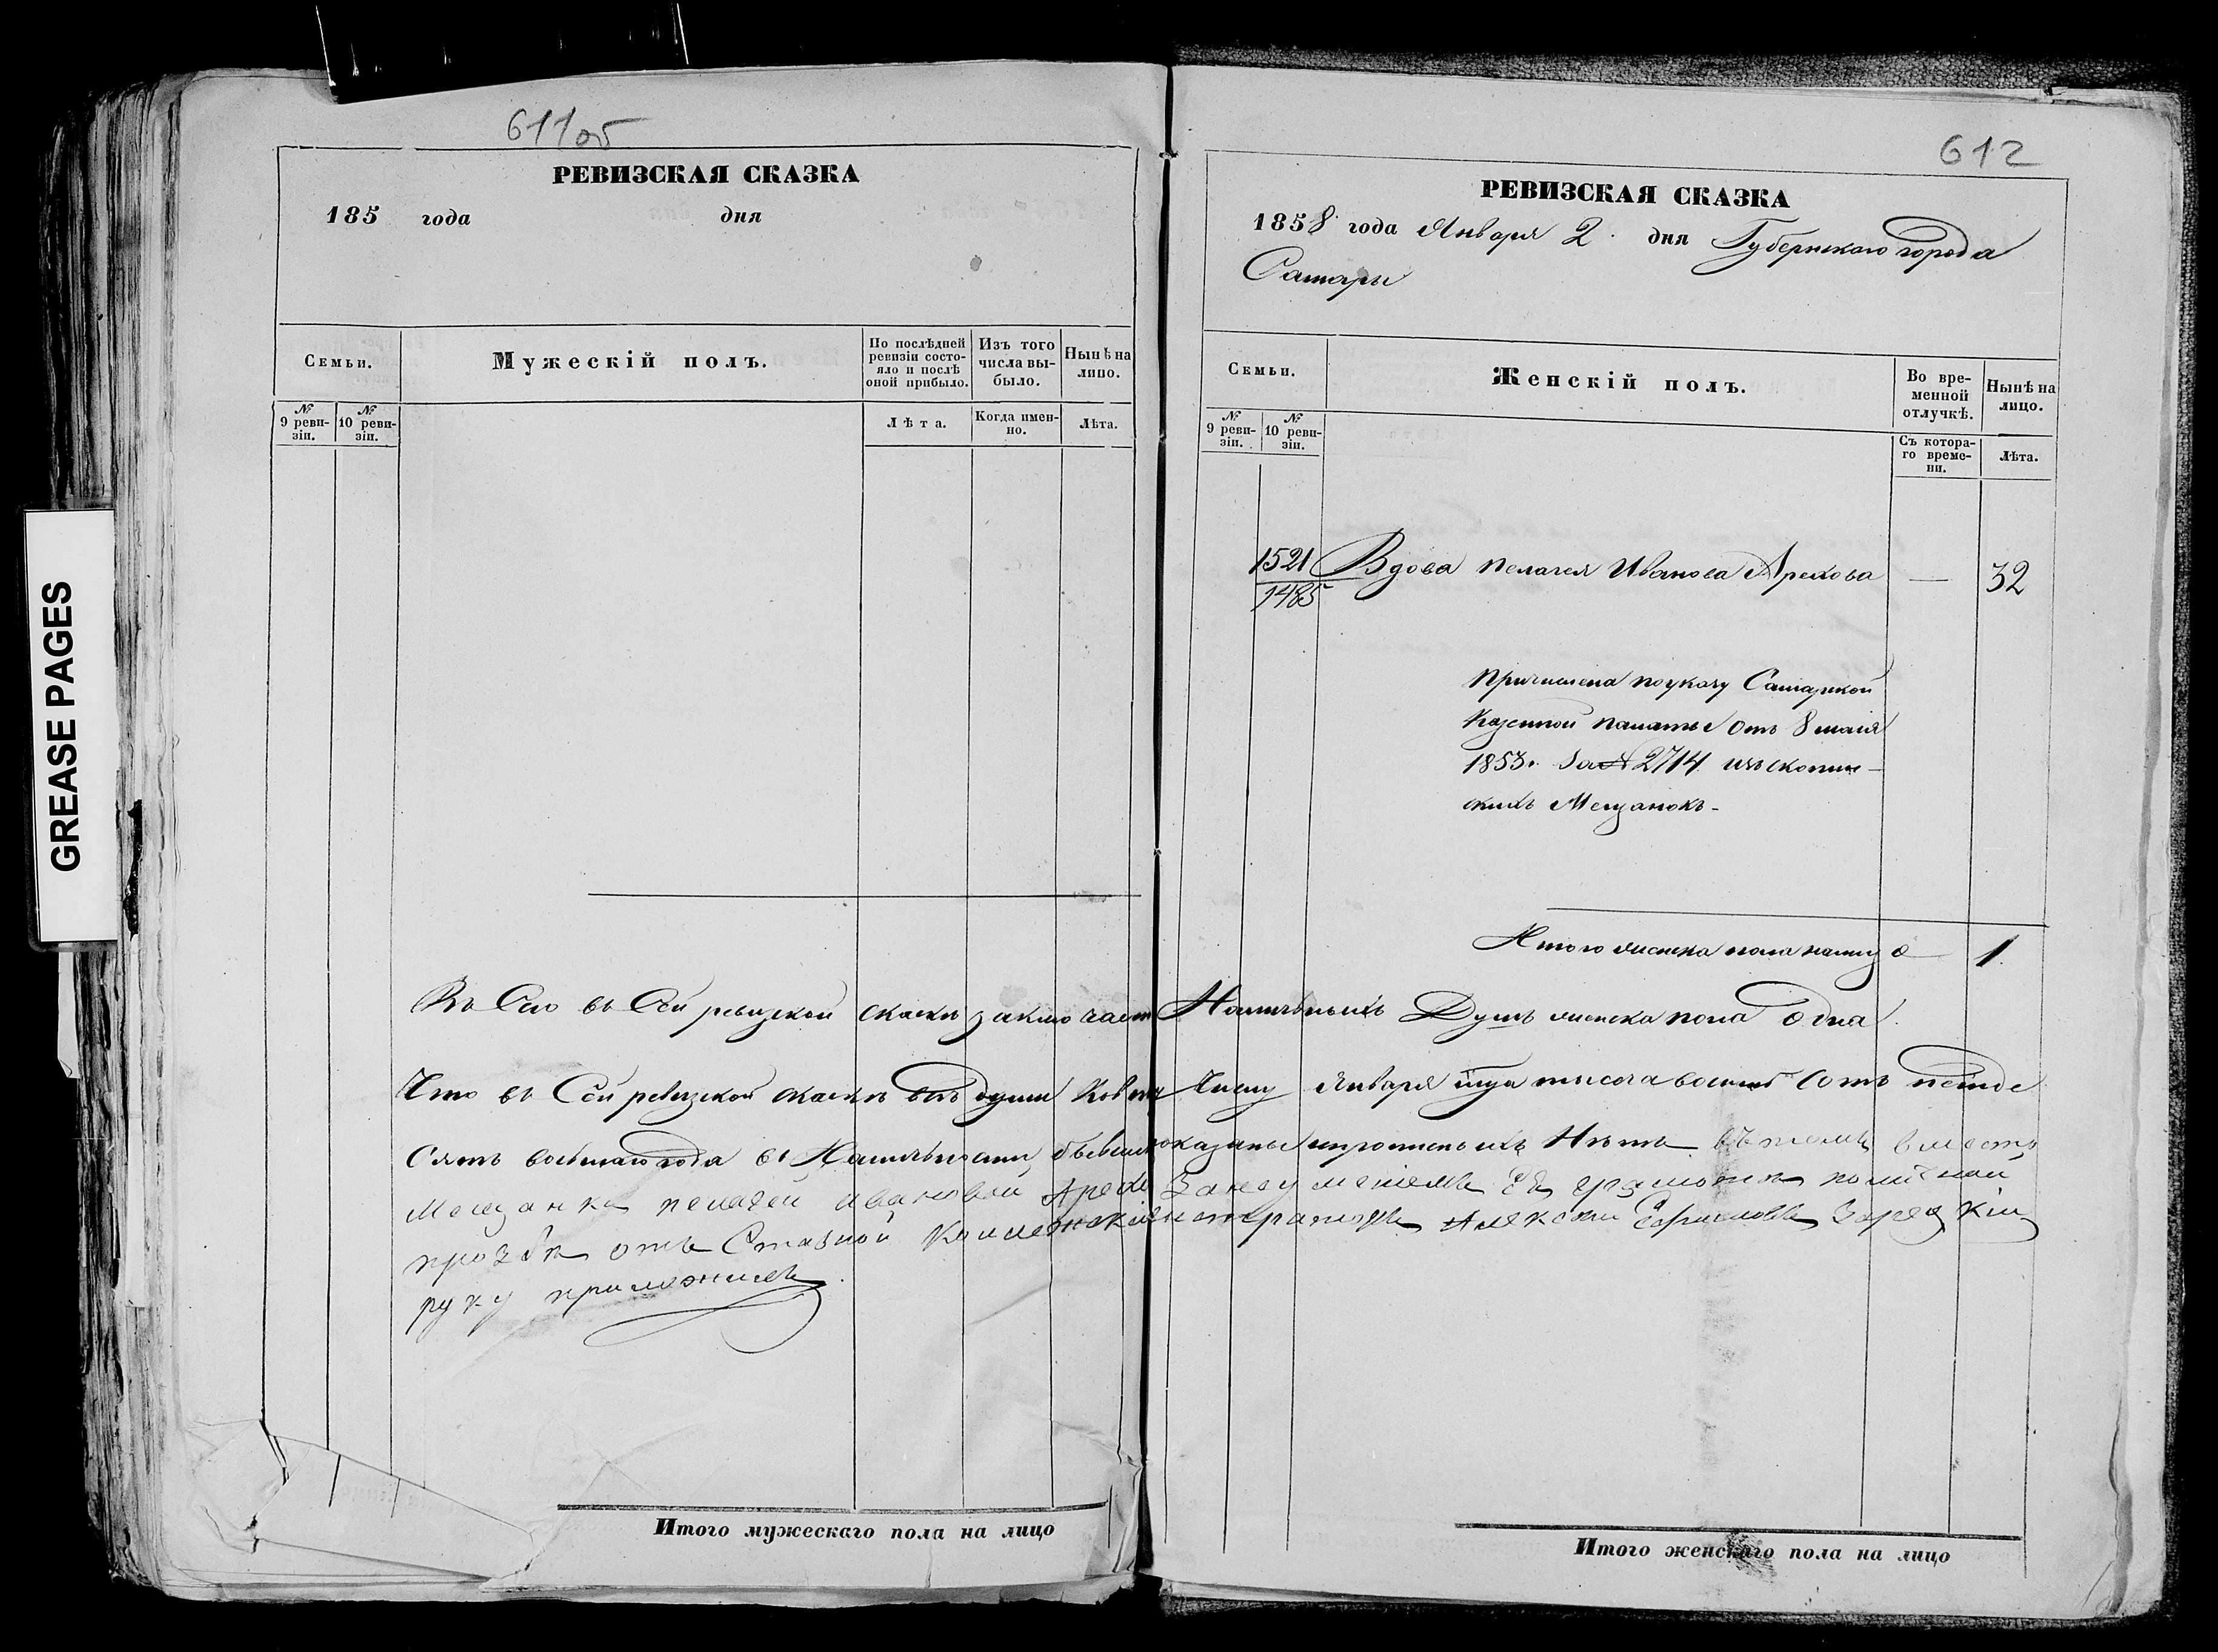 GREASE PAGES
611об
РЕВИЗСКАЯ СКАЗКА
185 года дня
Семьи.
Мужескій полъ.
По послѣдней ревизіи состояло и послѣ оной прибыло.
Изъ того числа выбыло.
Нынѣ на лицо.
№ 9 ревизіи.
№ 10 ревизіи.
Лѣта.
Когда именно.
Лѣта.
612
РЕВИЗСКАЯ СКАЗКА
1858 года Января 2 дня Губернскаго города
Самары
Семьи.
Женскій полъ.
Во временной отлучкѣ.
Нынѣ на лицо.
№ 9 ревизіи.
№ 10 ревизіи.
Съ котораго времени.
Лѣта.
1521 Вдова Пелагея Иванова Арехова — 32
1485
Причислена по указу Самарской
Казенной палаты отъ 8 маія
1853 за № 2714 изъ скопин-
скихъ Мещанокъ-
Итого женска пола налицо 1
Въ Сей ревизской сказкѣ заключает Наличныхъ Душъ женска пола одна
Что въ Сей ревизской сказкѣ всѣ души Января тысяча восемь сотъ пятде
Сятъ восьмаго года въ Наличности бывшие показаны и пропущеныхъ Нѣтъ въ чемъ вместо
Мещанки пелагеи ивановой Арехо За неуменіемъ Её грамотѣ по личной
прозбѣ отъ Ставной Коллежский регистраторъ Алексѣй Зарецкій
руку приложилъ
Итого мужескаго пола на лицо
Итого женскаго пола на лицо